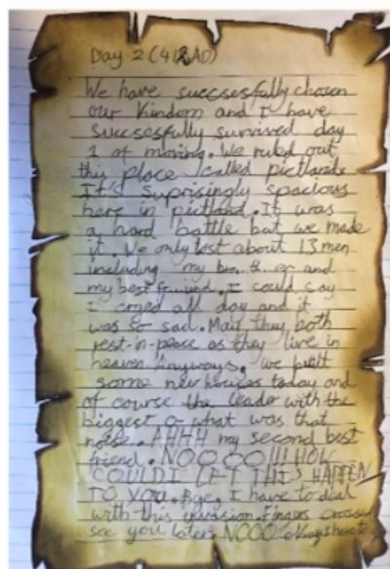 Day 2 (418AD)
We have succsesfully chosen
our Kindom and I have
succsesfully survived day
1 of moving. We rubd out
this place called pictlands
It's suprisingly spacious
here in pictland. It was
a hard battle but we made
it. We only lost about 13 men
including my and
my best friend. I could say
I cryed all day and it
was so sad. May they both
rest-in-peace as they live in
heaven Anyways, we built
some new houses today and
of course the leader with the
biggest o- what was that
noise. AHHH my second best
friend. NOOOO!!! HOW
COULD I LET THIS HAPPEN
TO YOU. Bye, I have to deal
with this invasion. Fingers crossed
see you later. NOOO